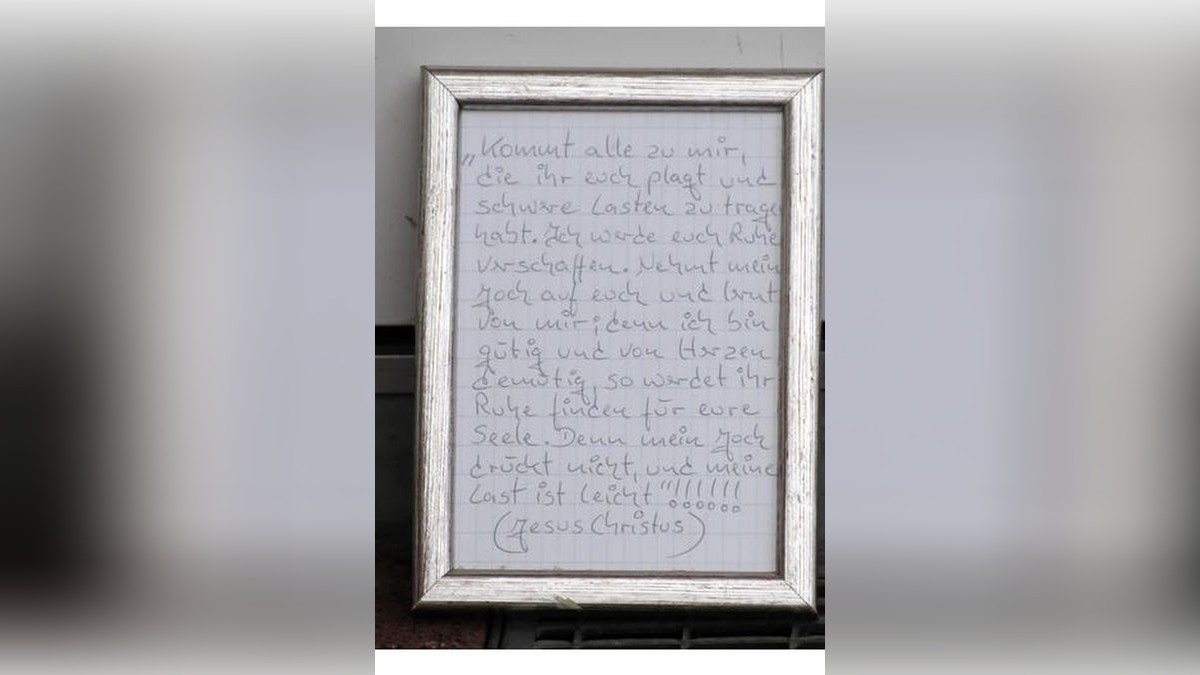 „Kommt alle zu mir,
die ihr euch plagt und
schwere Lasten zu trage
habt. Ich werde euch Ruhe
verschaffen. Nehmt mein
Joch auf euch und lernt
von mir; denn ich bin
gütig und von Herzen
demütig, so werdet ihr
Ruhe finden für eure
Seele. Denn mein Joch
drückt nicht, und meine
Last ist leicht"!!!!!!
(Jesus Christus)